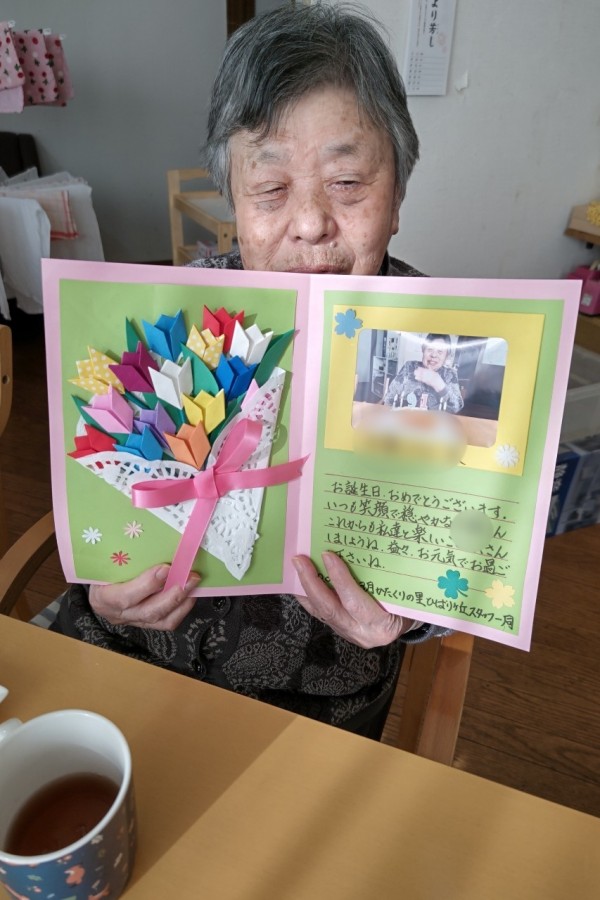 より芳し
お誕生日、おめでとうございます。
いつも笑顔で穏やかな ん
これからも私達と楽しい さん
しましょうね。益々、お元気でお過ご
下さいね。
月かたくりの里ひばりヶ丘スタッフ一同